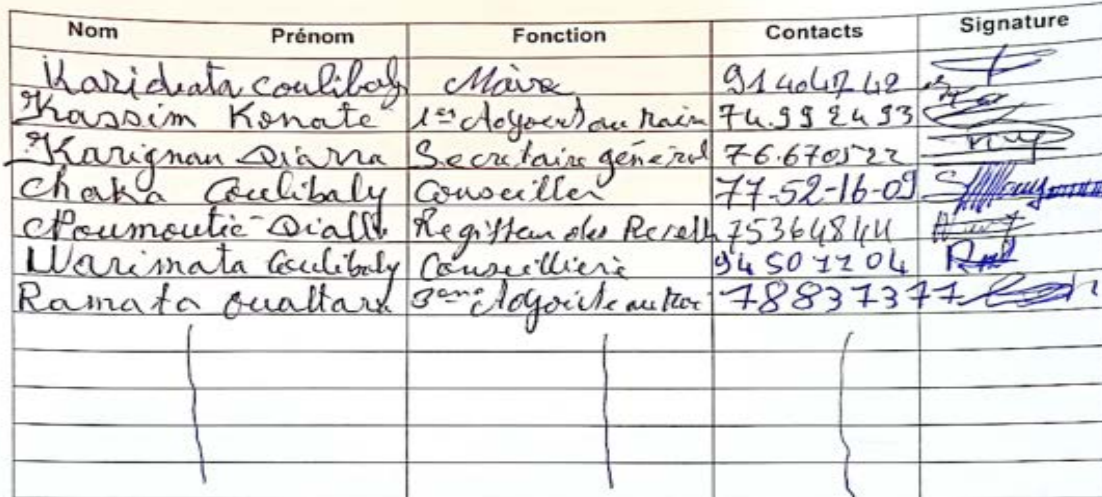 Nom Prénom Fonction Contacts Signature
Karidiata Coulibaly Maire 91404742
Kassim Konate 1er Adjoint au Maire 74.99 24 93
Karignan Diarra Secrétaire général 76.670522
Chaka Coulibaly Conseiller 77-52-16-09
Diallo Regisseur des Recett 75364844
Warimata Coulibaly Conseillière 94501204
Ramata Ouattara 3eme Adjointe au 78837377